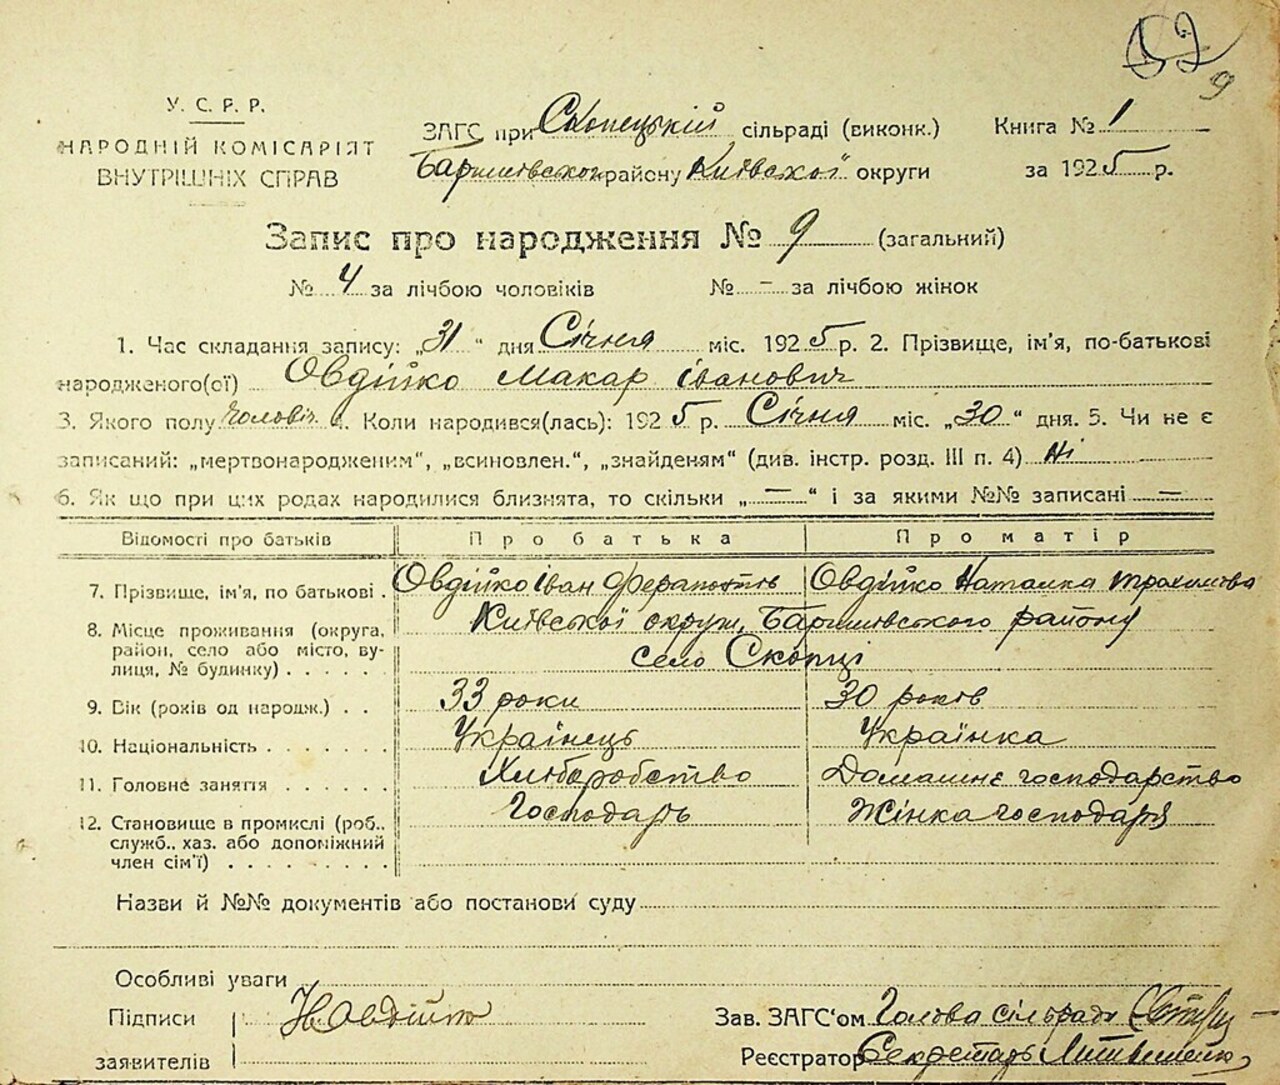 52
9
У. С. Р. Р.
НАРОДНІЙ КОМІСАРІЯТ
ВНУТРІШНІХ СПРАВ
ЗАГС при Скопецькій сільраді (виконк.)
Баришівського району Київської округи
Книга № 1
за 1925 р.
Запис про народження № 9 (загальний)
№ 4 за лічбою чоловіків № - за лічбою жінок
1. Час складання запису: „31“ дня Січня міс. 1925 р. 2. Прізвище, ім'я, по-батькові
народженого(ої) Овдійко Макар Іванович
3. Якого полу чоловіч. 4. Коли народився(лась): 1925 р. Січня міс. „30“ дня. 5. Чи не є
записаний: „мертвонародженим“, „всиновлен.“, „знайденям“ (див. інстр. розд. III п. 4) Ні
6. Як що при цих родах народилися близнята, то скільки „—“ і за якими №№ записані —
Відомості про батьків Про батька Про матір
7. Прізвище, ім'я, по батькові . Овдійко Іван Ферапонтів Овдійко Наталка
8. Місце проживання (округа, район, село або місто, вулиця, № будинку) . . . . . . Київської округи, Баришівського району
село Скопці
9. Вік (років од народж.) . . 33 роки 30 років
10. Національність . . . . . . . Українець Українка
11. Головне заняття . . . . . . Хліборобство Домашнє господарство
12. Становище в промислі (роб., служб., хаз. або допоміжний член сім'ї) . . . . . . . . . Господарь Жінка господаря
Назви й №№ документів або постанови суду
Особливі уваги
Підписи заявителів Н Овдійко
Зав. ЗАГС'ом Голова сільради
Реєстратор Секретарь Литвиненко